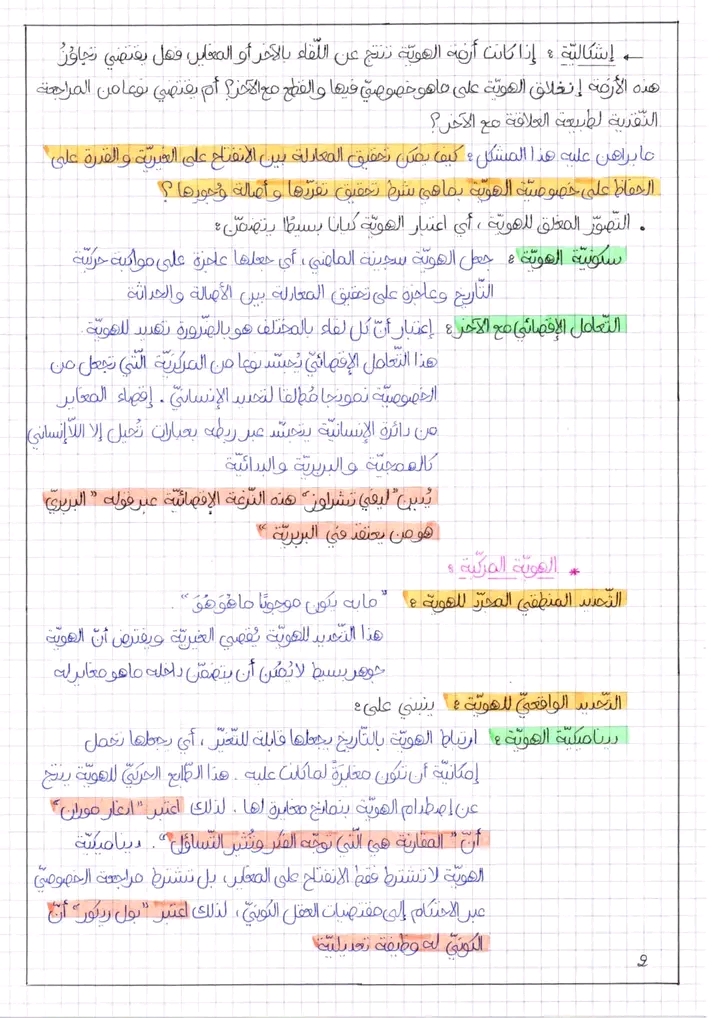 ← إشكاليّة : إذا كانت أزمة الهويّة تنتج عن اللّقاء بالآخر أو المغاير، فهل يقتضي تجاوُزُ
هذه الأزمة إنغلاق الهويّة على ماهو خصوصيّ فيها والقطع مع الآخر؟ أم يقتضي نوعا من المراجعة
النّقدية لطبيعة العلاقة مع الآخر؟
ما يراهن عليه هذا المشكل : كيف يمكن تحقيق المعادلة بين الانفتاح على الغيريّة والقدرة على
الحفاظ على خصوصيّة الهويّة بماهي شرط تحقيق تفرّدها و أصالة وُجودها ؟
• التّصوّر المغلق للهويّة ، أي اعتبار الهويّة كيانا بسيطًا يتضمّن :
سكونيّة الهويّة : جعل الهويّة سجينة الماضي، أي جعلها عاجزة على مواكبة حركيّة
التّاريخ وعاجزة على تحقيق المعادلة بين الأصالة والحداثة
التّعامل الإقصائي مع الآخر : إعتبار أنّ كل لقاء بالمختلف هو بالضّرورة تهديد للهويّة.
هذا التّعامل الإقصائيّ يُجسّد نوعا من المركزيّة الّتي تجعل من
الخصوصيّة نموذجا مُطلقا لتحديد الإنسانيّ . إقصاء المغاير
من دائرة الإنسانيّة يتجسّد عبر ربطه بعبارات تُحيل إلا اللاّإنساني
كالهمجيّة والبربريّة والبدائيّة
يُبيّن "ليفي شتراوز" هذه النّزعة الإقصائيّة عبر قوله "البربريّ
هو من يعتقد في البربريّة"
* الهويّة المركّبة :
التّحديد المنطقي المجرّد للهويّة : "ما به يكون موجودًا ما هُوَ هُوَ".
هذا التّحديد للهويّة يُقصي الغيريّة ويفترض أنّ الهويّة
جوهر بسيط لا يُمكن أن يتضمّن داخله ماهو مغاير له
التّحديد الواقعيّ للهويّة : ينبني على :
ديناميكيّة الهويّة : ارتباط الهويّة بالتّاريخ يجعلها قابلة للتّغيّر ، أي يجعلها تحمل
إمكانيّة أن تكون مغايرةً لما كانت عليه . هذا الطّابع الحركيّ للهويّة ينتج
عن إصطدام الهويّة بنماذج مغايرة لها . لذلك اعتبر "ادغار موران"
أنّ "المقارنة هي الّتي توجّه الفكر وتُثير التّساؤل". ديناميكيّة
الهويّة لا تشترط فقط الانفتاح على المغاير، بل تشترط مراجعة الخصوصيّ
عبر الاحتكام إلى مقتضيات العقل الكونيّ، لذلك اعتبر "بول ريكور" أنّ
الكونيّ له وظيفة تعديليّة
2